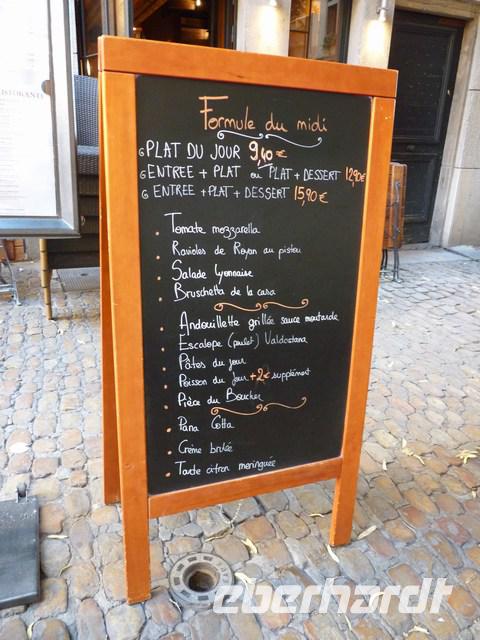 RISTORANTE
Formule du midi
PLAT DU JOUR 9,40 €
ENTREE + PLAT ou PLAT + DESSERT 12,90€
ENTREE +PLAT + DESSERT 15,90€
Tomate mozzarella
Ravioles de Royan au pistou
Salade lyonnaise
Bruschetta de la casa
Andouillette grillée sauce moutarde
Escalope (poulet) Valdostana
Pâtes du jour
Poisson du Jour +2€ supplément
Pièce du Boucher
Pana Cotta
Crème brûlée
Tarte citron meringuée
eberhardt